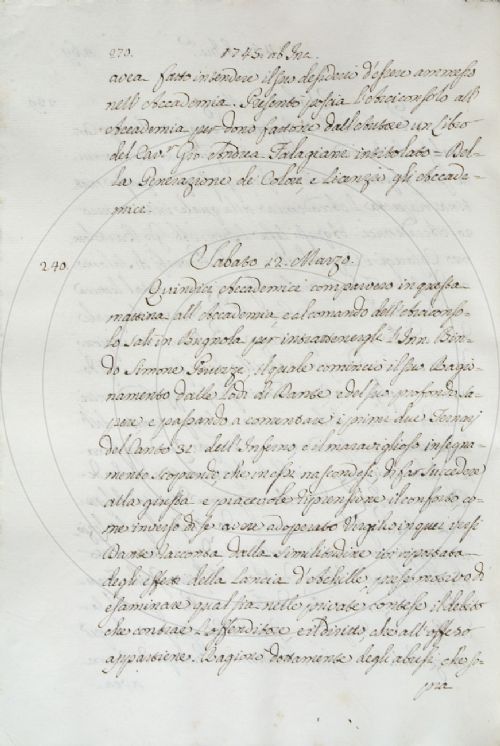 270. 1743. ab Inc.
avea fatto intendere il suo desiderio d'essere ammesso
nell' Accademia. Presentò poscia l'Arciconsolo all'
Accademia per dono fattone dall'Autore un Libro
del Cav.r Gio. Andrea intitolato = Del-
la Generazione de Colori e licenziò gli Accade-
mici.
240. Sabato 22. Marzo.
Quindici Accademici comparvero in questa
mattina all' Accademia e al comando dell' Arciconso-
lo salì in Bugnola per intrattenergli l'Inn. Bin-
do Simone Peruzzi, il quale cominciò il suo Ragio-
namento dalle lodi di Dante e del suo profondo sa-
pere e passando a comentare i primi due Ternarj
del Canto 31. dell' Inferno, e il maraviglioso insegna-
mento scoprendo, che in essi nascondesi, di far succedere
alla giusta e piacevole riprensione il conforto co-
me inverso di se avere adoperato Virgilio in quei versi
Dante racconta dalla similitudine ivi riportata
degli effetti della Lancia d'Achille, prese motivo di
esaminare qual sia nelle private contese il debito
che contrae l'offenditore e il diritto, che all' offeso
appartiene. Ragionò dottamente degli abusi, che so-
pra